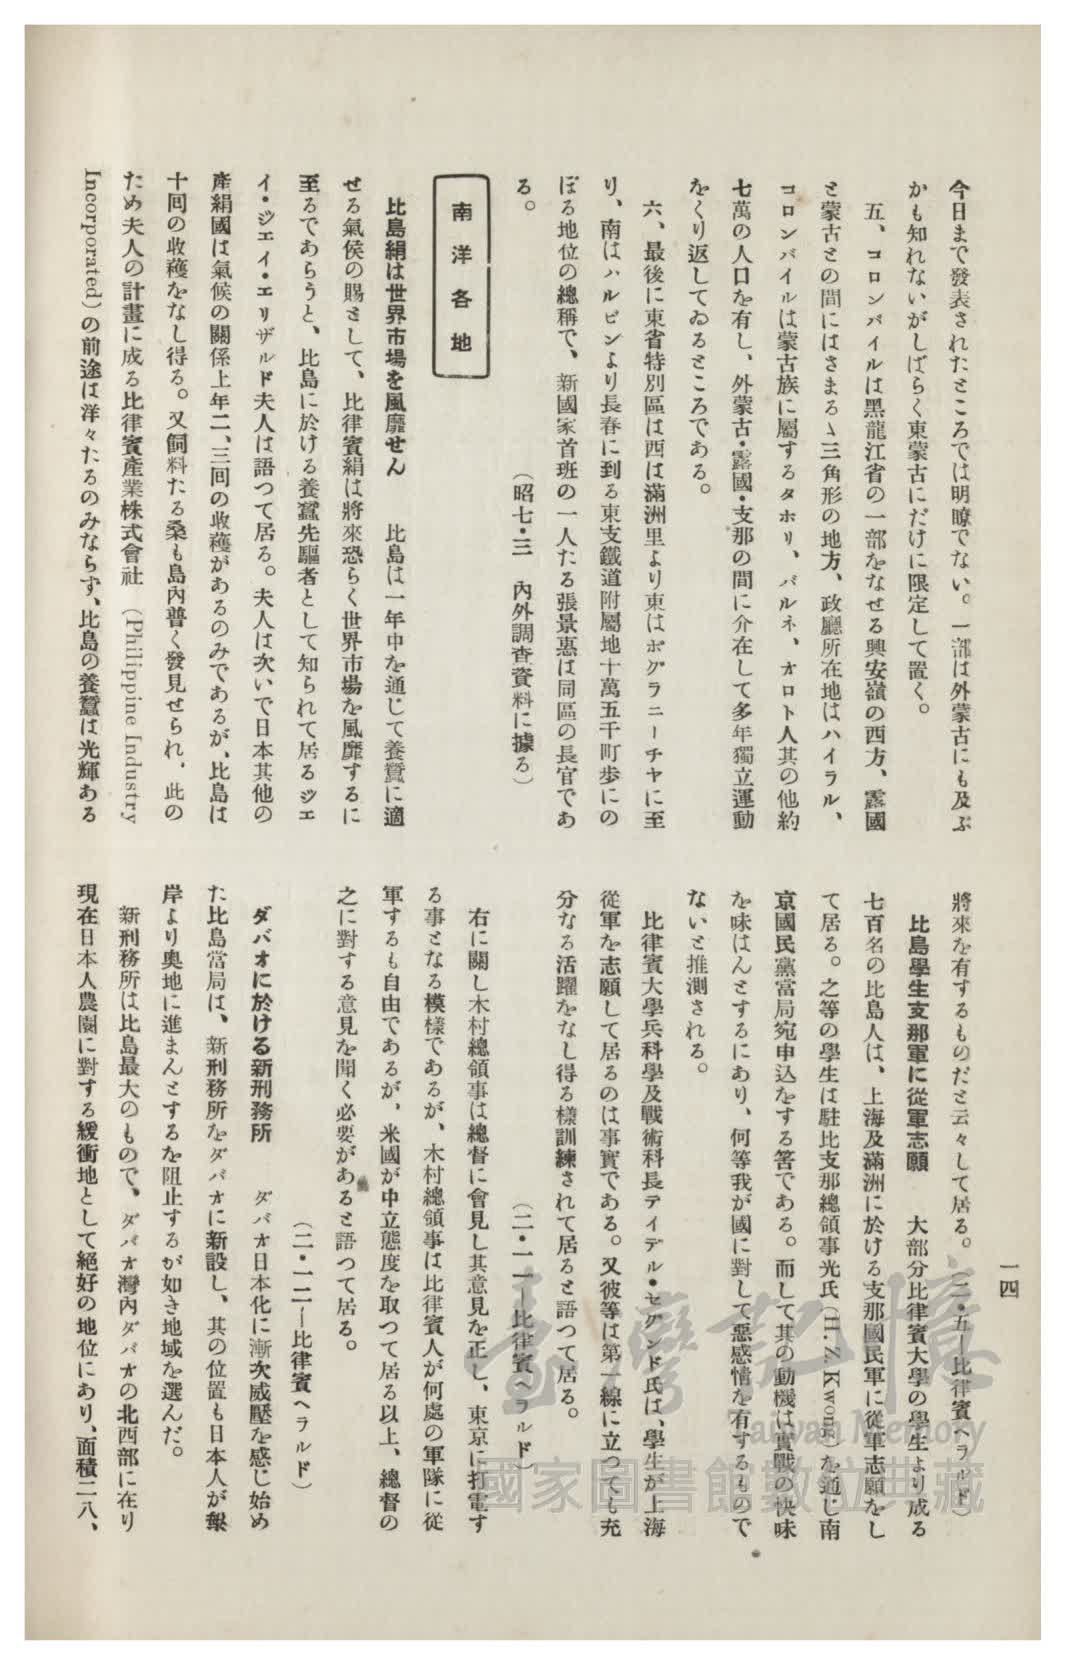 一四
今日まで發表されたところでは明瞭でない。一部は外蒙古にも及ぶ
かも知れないがしばらく東蒙古にだけに限定して置く。
五、コロンバイルは黑龍江省の一部をなせる興安嶺の西方、露國
と蒙古との間にはさまるゝ三角形の地方、政廳所在地はハイラル、
コロンバイルは蒙古族に屬するタホリ、バルネ、オロト人其の他約
七萬の人口を有し、外蒙古・露國・支那の間に介在して多年獨立運動
をくり返してゐるところである。
六、最後に東省特別區は西は滿洲里より東はポグラニーチヤに至
り、南はハルビンより長春に到る東支鐵道附屬地十萬五千町步にの
ぼる地位の總稱で、新國家首班の一人たる張景惠は同區の長官であ
る。
（昭七・三　內外調査資料に據る）
南洋各地
比島絹は世界市場を風靡せん　比島は一年中を通じて養蠶に適
せる氣侯の賜として、比律賓絹は將來恐らく世界市場を風靡するに
至るであらうと、比島に於ける養蠶先驅者として知られて居るジエ
イ・ジエイ・エリザルド夫人は語つて居る。夫人は次いで日本其他の
產絹國は氣候の關係上年二、三回の收穫があるのみであるが、比島は
十回の收穫をなし得る。又飼料たる桑も島內普く發見せられ、此の
ため夫人の計畫に成る比律賓產業株式會社（Philippine Industry
Incorporated）の前途は洋々たるのみならず、比島の養蠶は光輝ある
將來を有するものだと云々して居る。（二・五―比律賓ヘラルド）
比島學生支那軍に從軍志願　大部分比律賓大學の學生より成る
七百名の比島人は、上海及滿洲に於ける支那國民軍に從軍志願をし
て居る。之等の學生は駐比支那總領事光氏（H. Z. Kwong）を通じ南
京國民黨當局宛申込をする筈である。而して其の動機は實戰の快味
を味はんとするにあり、何等我が國に對して惡感情を有するもので
ないと推測される。
比律賓大學兵科學及戰術科長テイデル・セグンド氏は、學生が上海
從軍を志願して居るのは事實である。又彼等は第一線に立つても充
分なる活躍をなし得る樣訓練されて居ると語つて居る。
（二・一一―比律賓ヘラルド）
右に關し木村總領事は總督に會見し其意見を正し、東京に打電す
る事となる模樣であるが、木村總領事は比律賓人が何處の軍隊に從
軍するも自由であるが、米國が中立態度を取つて居る以上、總督の
之に對する意見を聞く必要があると語つて居る。
（二・一二―比律賓ヘラルド）
ダバオに於ける新刑務所　ダバオ日本化に漸次威壓を感じ始め
た比島當局は、新刑務所をダバオに新設し、其の位置も日本人が海
岸より奧地に進まんとするを阻止するが如き地域を選んだ。
新刑務所は比島最大のもので、ダバオ灣內ダバオの北西部に在り
現在日本人農園に對する緩衝地として絕好の地位にあり、面積二八、
臺灣記憶
Taiwan Memory
國家圖書館數位典藏